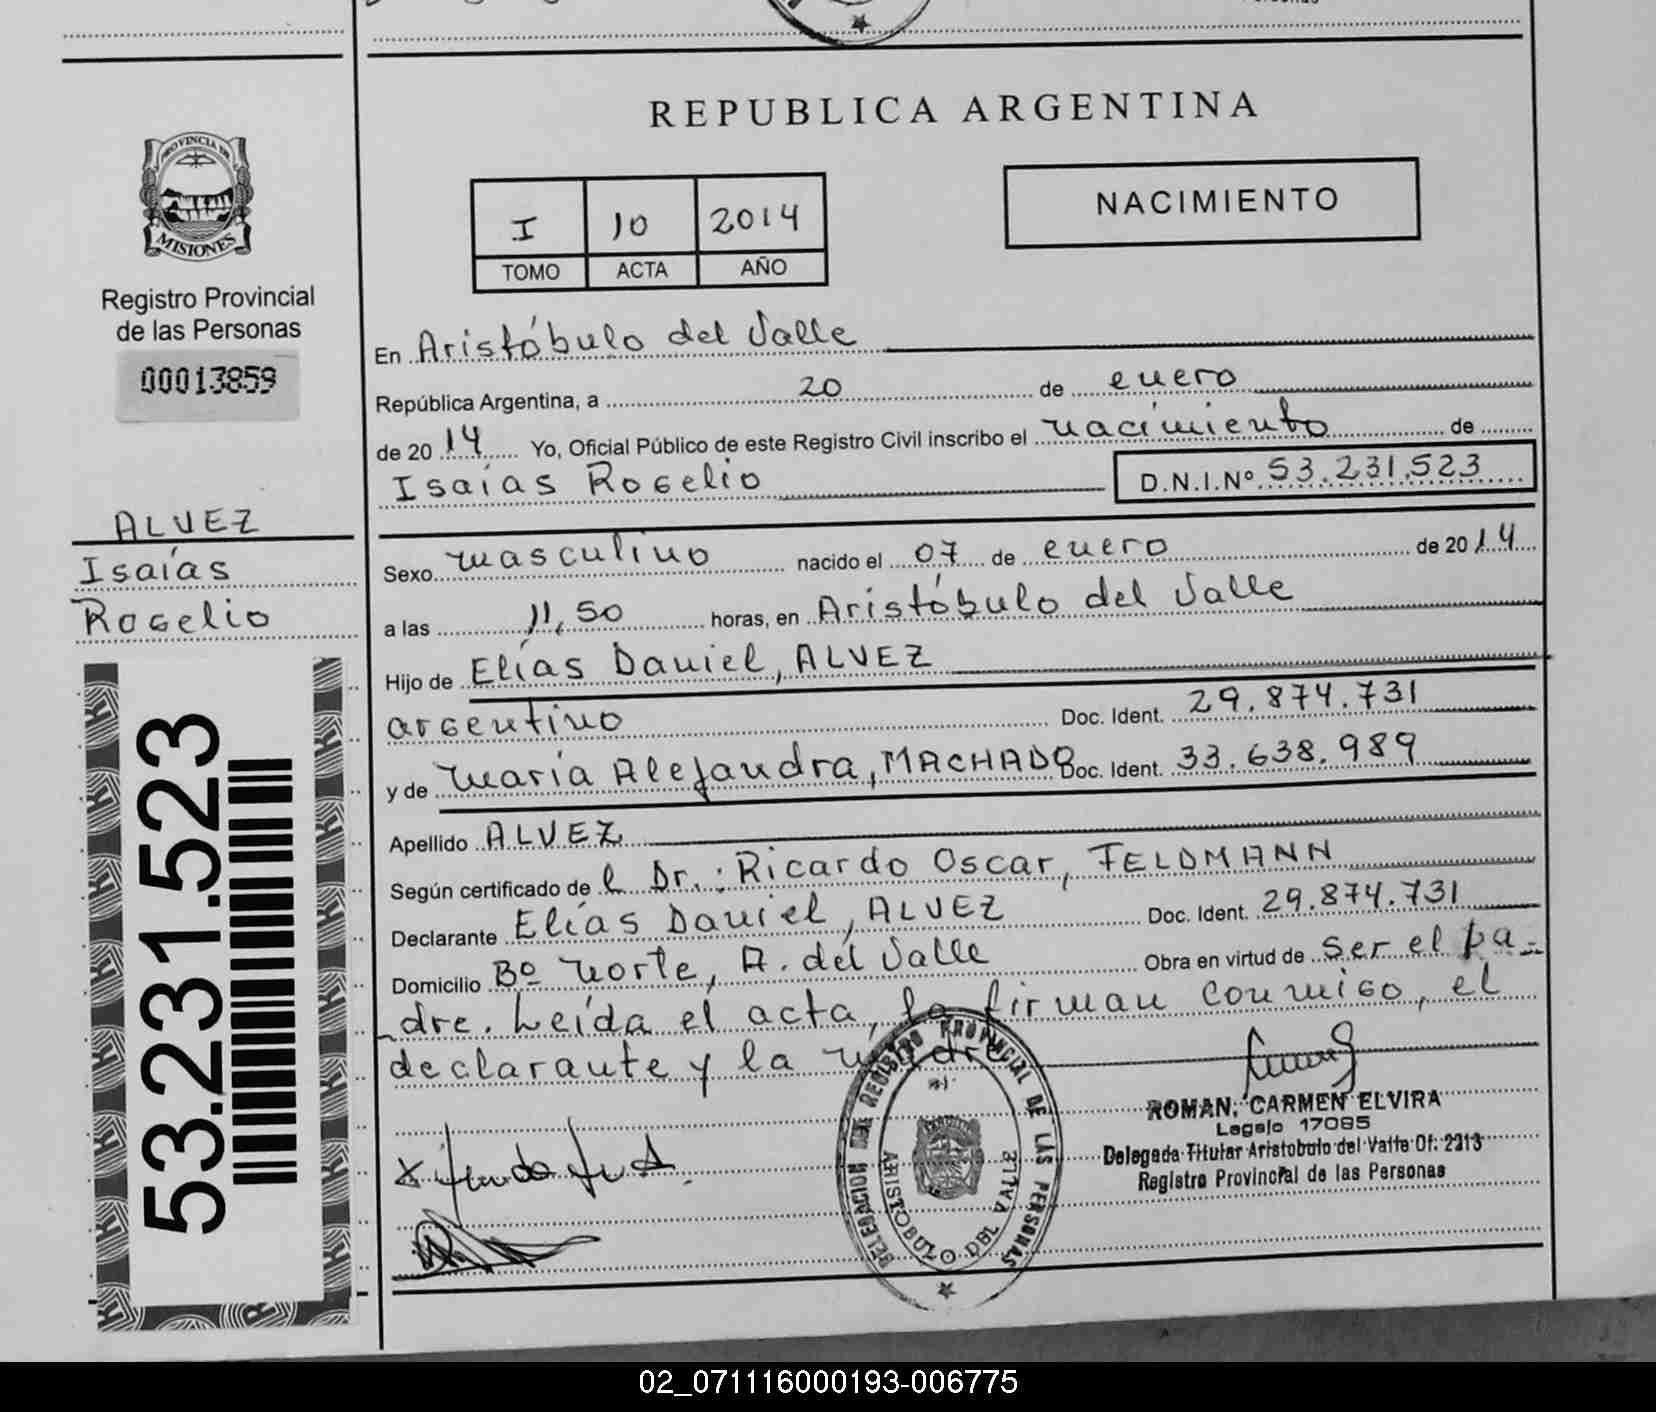 REPUBLICA ARGENTINA
PROVINCIA DE
MISIONES
Registro Provincial
de las Personas
00013859
ALVEZ
Isaías
Rogelio
53.231.523
I 10 2014
TOMO ACTA AÑO
NACIMIENTO
En Aristóbulo del Valle
República Argentina, a 20 de enero
de 2014 Yo, Oficial Público de este Registro Civil inscribo el nacimiento de
Isaías Rogelio D.N.I.Nº 53.231.523
Sexo masculino nacido el 07 de enero de 2014
a las 11,50 horas, en Aristóbulo del Valle
Hijo de Elías Daniel, ALVEZ
argentino Doc. Ident. 29.874.731
y de María Alejandra, MACHADO Doc. Ident. 33.638.989
Apellido ALVEZ
Según certificado de l Dr.: Ricardo Oscar, FELDMANN
Declarante Elías Daniel, ALVEZ Doc. Ident. 29.874.731
Domicilio Bº Norte, A. del Valle Obra en virtud de ser el pa-
dre. Leída el acta, la firman conmigo, el
declarante y la madre
ROMAN, CARMEN ELVIRA
Legajo 17085
Delegada Titular Aristobulo del Valle Of: 2213
Registro Provincial de las Personas
DELEGACION DEL REGISTRO PROVINCIAL DE LAS PERSONAS
ARISTOBULO DEL VALLE
02_071116000193-006775